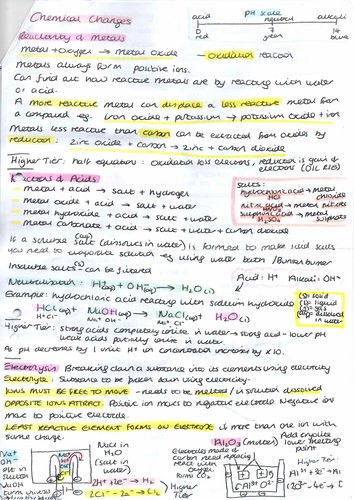 Chemical Changes
acid pH scale alkali
neutral
0 7 14
red green blue
Reactivity of Metals
metal + oxygen → metal oxide - oxidation reaction
Metals always form positive ions.
Can find out how reactive metals are by reacting with water
or acid.
A more reactive metal can displace a less reactive metal from
a compound eg. iron oxides + potassium → potassium oxide + iron
Metals less reactive than carbon can be extracted from oxides by
reduction: zinc oxide + carbon → zinc + carbon dioxide
Higher Tier: half equations: oxidation loss electrons, reduction is gain of
electrons (OIL RIG)
Reactions of Acids
- metal + acid → salt + hydrogen
- metal oxide + acid → salt + water
- metal hydroxide + acid → salt + water
- metal carbonate + acid → salt + water + carbon dioxide
salts:
hydrochloric acid → metal
HCl chloride
nitric acid → metal nitrate
HNO3
sulphuric acid → metal
H2SO4 sulphate
If a soluble salt (dissolves in water) is formed to make solid salts
you need to evaporate solution eg using water bath / Bunsen burner
Insoluble salts (s) can be filtered
Acid: H+ Alkali: OH-
Neutralisation: H+(aq) + OH-(aq) → H2O(l)
Example: hydrochloric acid reacting with sodium hydroxide
HCl(aq) + NaOH(aq) → NaCl(aq) + H2O(l)
H+ Cl- Na+ OH- Na+ Cl-
(s): solid
(l): liquid
(g): gas
(aq): dissolved
in water
Higher Tier: strong acids completely ionise in water → strong acid = lower pH
weak acids partially ionise in water.
As pH decreases by 1 unit H+ ion concentration increases by x10.
Electrolysis: Breaking down a substance into its elements using electricity
Electrolyte: Substance to be broken down using electricity
IONS MUST BE FREE TO MOVE - needs to be melted / in solution dissolved
OPPOSITE IONS ATTRACT: Positive ion moves to negative electrode. Negative ion
moves to positive electrode.
LEAST REACTIVE ELEMENT FORMS ON ELECTRODE if more than one ion with
same charge.
Na+
OH-
are left in
solution
NaOH
turns universal
NaCl in
H2O
(salt in
water)
2H+ + 2e- → H2
2Cl- - 2e- → Cl2
Higher
Tier
Al2O3 (molten)
Electrodes made of
carbon need replacing
react with
oxygen
forms CO2
Add cryolite
lower melting
point
Higher Tier:
Al3+ + 3e- → Al